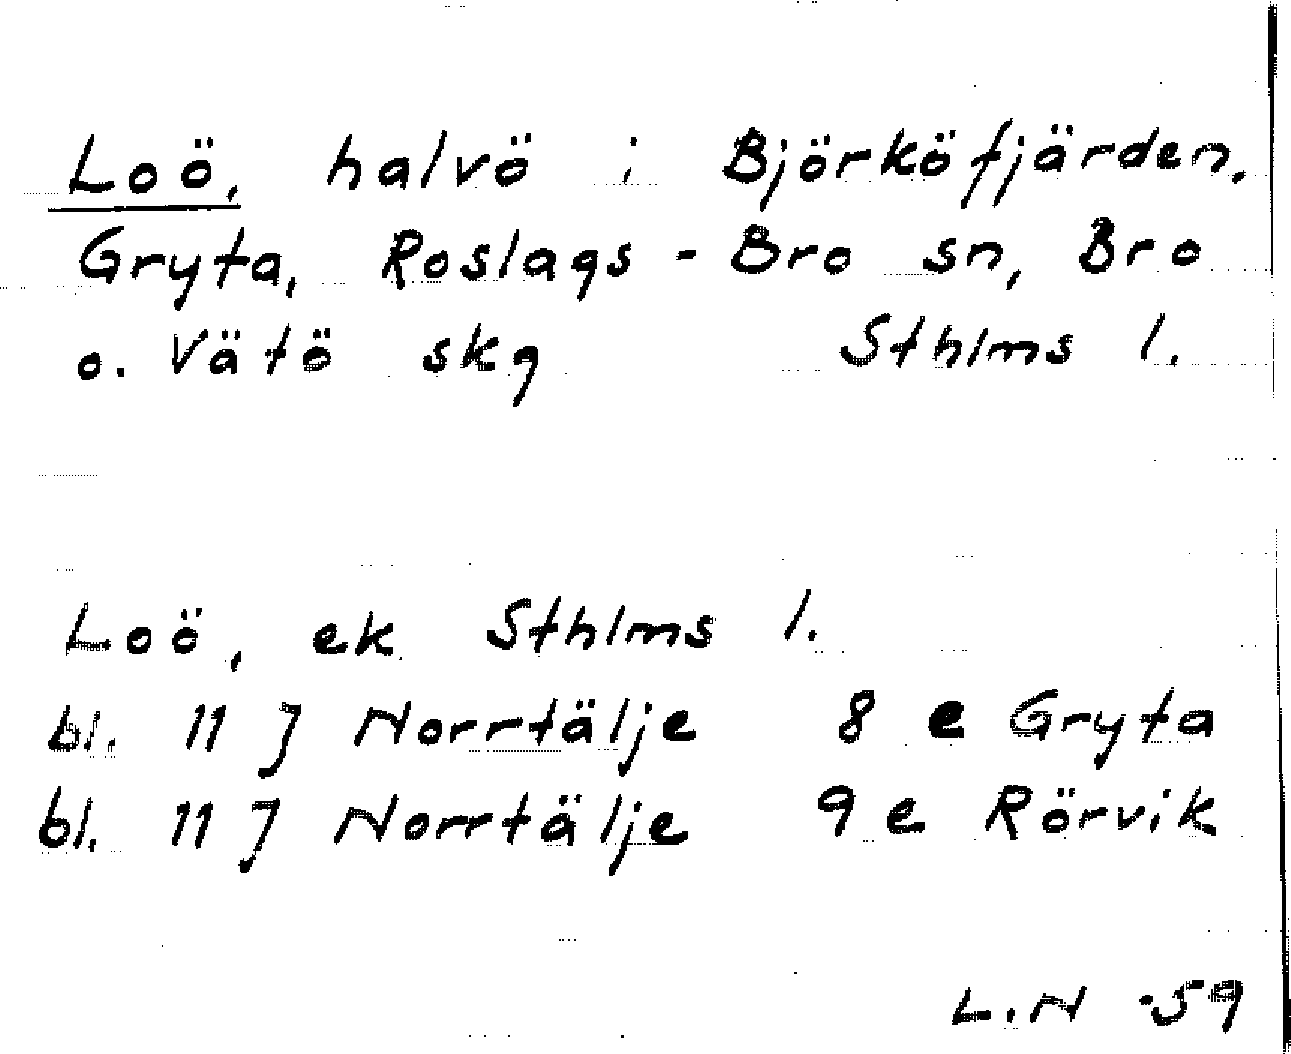 Loö, halvö i Björköfjärden,
Gryta, Roslags-Bro sn, Bro
o. Vätö skg Sthlms l.
Loö, ek Sthlms l.
bl. 11 J Norrtälje 8 e Gryta
bl. 11 J Norrtälje 9 e Rörvik
L.N -59